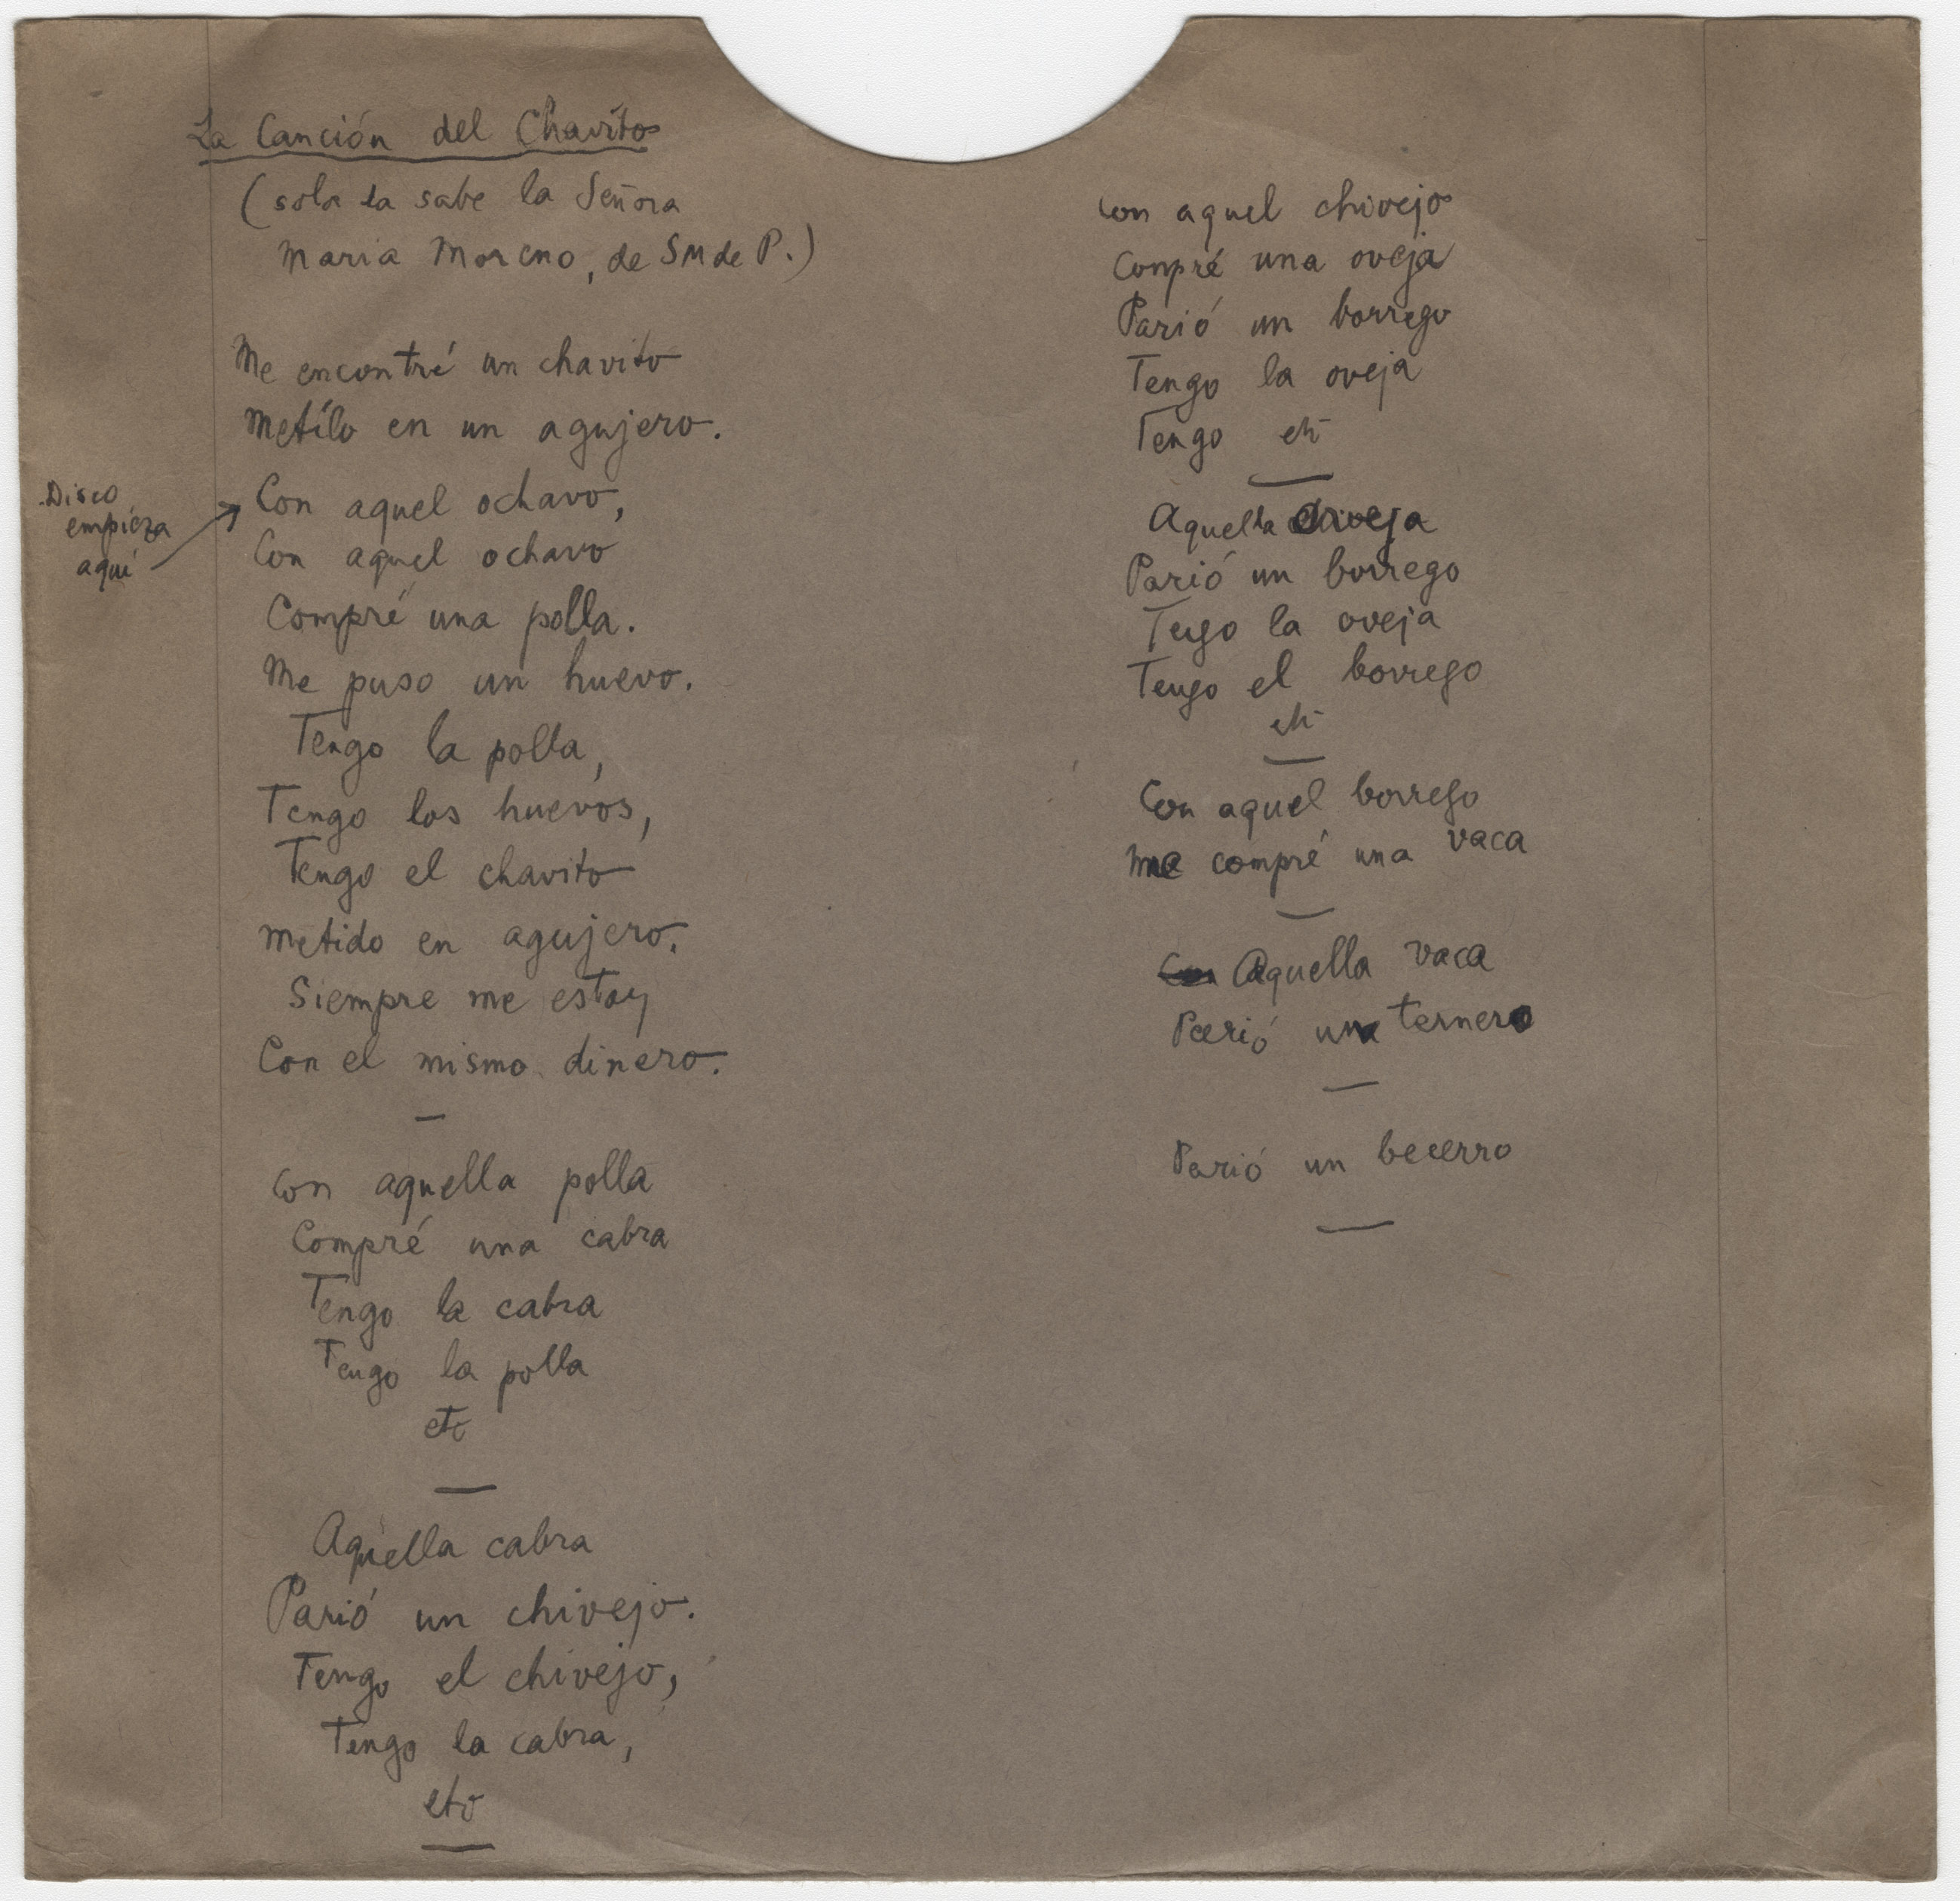 La Canción del Chavito
(sola la sabe la Señora
Maria Moreno, de SM de P.)
Me encontré un chavito
Metílo en un agujero.
Disco
empieza
aquí
Con aquel ochavo,
Con aquel ochavo
Compré una polla.
Me puso un huevo.
Tengo la polla,
Tengo los huevos,
Tengo el chavito
Metido en agujero.
Siempre me estoy
Con el mismo dinero.
—
Con aquella polla
Compré una cabra
Tengo la cabra
Tengo la polla
etc
—
Aquella cabra
Parió un chivejo.
Tengo el chivejo,
Tengo la cabra,
etc
—
Con aquel chivejo
Conpré una oveja
Parió un borrego
Tengo la oveja
Tengo etc
—
Aquella oveja
Parió un borrego
Tengo la oveja
Tengo el borrego
etc
—
Con aquel borrego
Me compré una vaca
—
Con Aquella vaca
Parió un ternero
—
Parió un becerro
—